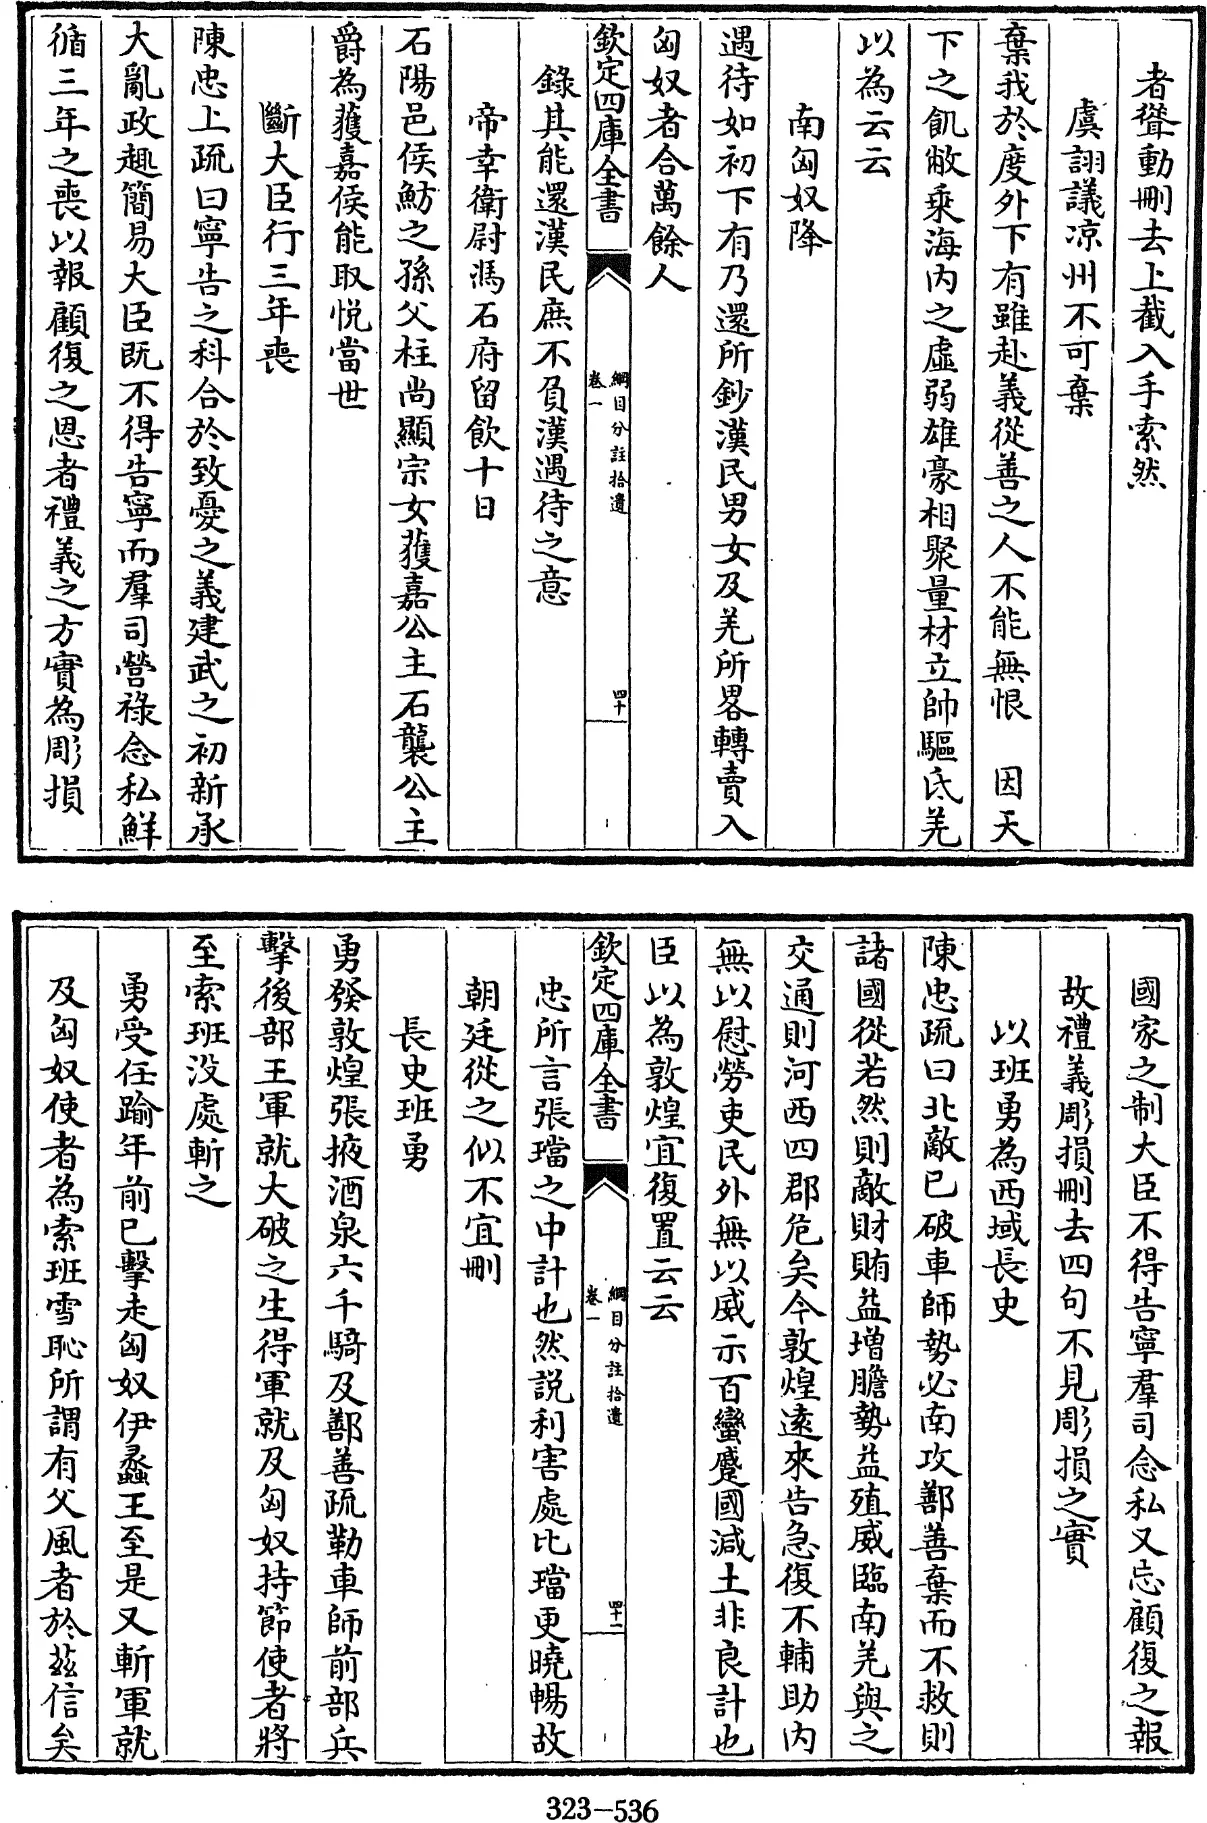 者聳動刪去上截入手索然
虞詡議凉州不可棄
棄我於度外下有雖赴義從善之人不能無恨　因天
下之飢敝乗海内之虛弱雄豪相聚量材立帥驅氐羌
以為云云
南匈奴降
遇待如初下有乃還所鈔漢民男女及羌所畧轉賣入
匈奴者合萬餘人
欽定四庫全書
綱目分註拾遺
卷一
四十
錄其能還漢民庶不負漢遇待之意
帝幸衛尉馮石府留飲十日
石陽邑侯魴之孫父柱尚顯宗女獲嘉公主石襲公主
爵為獲嘉侯能取悅當世
斷大臣行三年喪
陳忠上疏曰寧告之科合於致憂之義建武之初新承
大亂政趣簡易大臣既不得告寧而羣司營祿念私鮮
循三年之喪以報顧復之恩者禮義之方實為彫損
國家之制大臣不得告寧羣司念私又忘顧復之報
故禮義彫損刪去四句不見彫損之實
以班勇為西域長史
陳忠疏曰北敵已破車師勢必南攻鄯善棄而不救則
諸國從若然則敵財賄益增膽勢益殖威臨南羌與之
交通則河西四郡危矣今敦煌逺來告急復不輔助内
無以慰勞吏民外無以威示百蠻蹙國減土非良計也
臣以為敦煌宜復置云云
欽定四庫全書
綱目分註拾遺
卷一
四十一
忠所言張璫之中計也然説利害處比璫更曉暢故
朝廷從之似不宜刪
長史班勇
勇發敦煌張掖酒泉六千騎及鄯善疏勒車師前部兵
擊後部王軍就大破之生得軍就及匈奴持節使者將
至索班没處斬之
勇受任踰年前已擊走匈奴伊蠡王至是又斬軍就
及匈奴使者為索班雪恥所謂有父風者於兹信矣
323-536